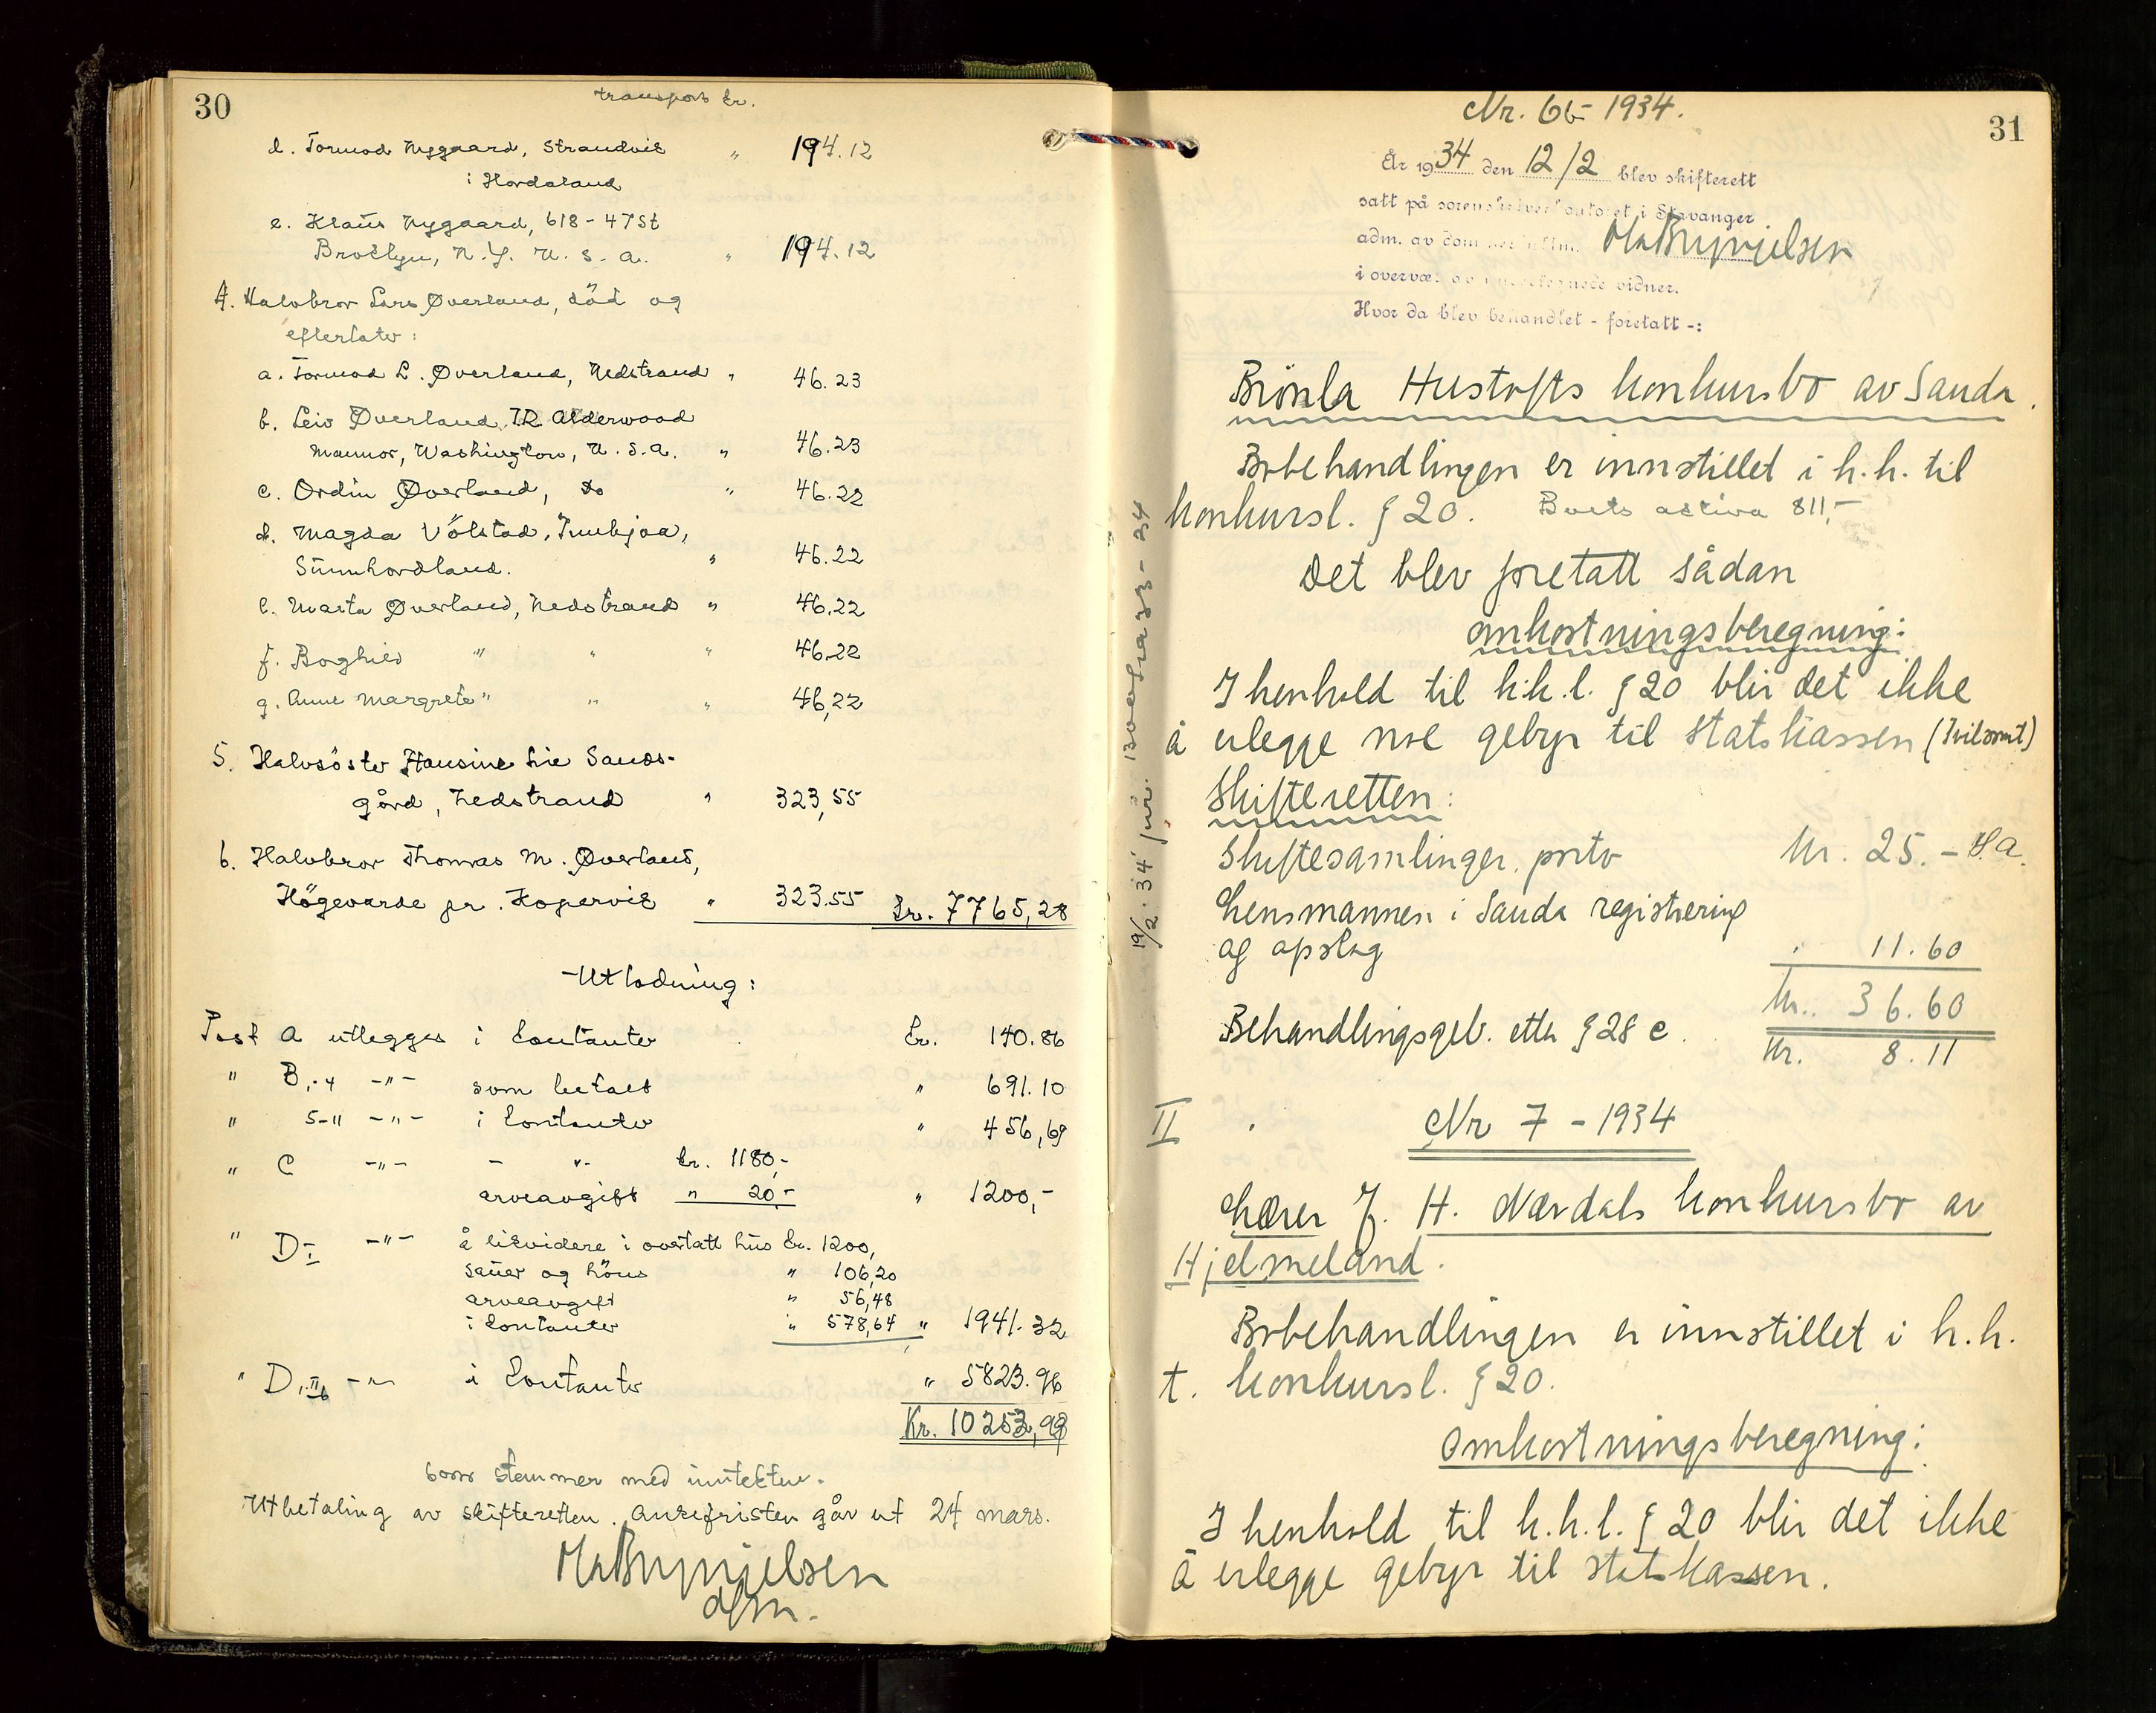 30
transport kr.
d. Tormod Nygaard, Strandvik " 194.12
i Hordaland
e. Klaus Nygaard, 618 - 47 St
Broklyn, N.Y. U.S.A. " 194.12
4. Halvbror Lars Øverland, död og
efterlater:
a. Tormod L. Øverland, Nedstrand " 46.23
b. Leiv Øverland, Alderwood
Mannor, Washington, U.S.A. " 46.23
c. Ordin Øverland, do " 46.22
d. Magda Völstad, Innbjoa,
Sunnhordland. " 46.22
e. Marta Øverland, Nedstrand " 46.22
f. Borghild " " " 46.22
g. Anne Margrete " " " 46,22
5. Halvsöster Hansine Lie Sands-
gård, Nedstrand " 323,55
6. Halvbror Thomas M. Øverland,
Högevarde pr. Kopervik " 323.55 kr. 7765,28
Utlodning:
Post A utlegges i kontanter kr. 140.86
" B, 1-4 -"- som betalt " 691.10
" 5-11 -"- i kontanter " 456,69
" C -"- - "- kr. 1180,-
arveavgift " 20,- " 1200,-
" D I -"- å likvidere i overtatt hus kr. 1200,
sauer og höns " 106,20
arveavgift " 56,48
i kontanter " 578,64 " 1941.32
" D, II-6 -"- i kontanter " 5823.96
Kr. 10253,93
som stemmer med inntekten.
Utbetaling av skifteretten. Ankefristen går ut 24 mars.
Ola Brynjelsen
dfm.
31
Nr. 6b - 1934.
År 1934 den 12/2 blev skifterett
satt på sorenskriverkontoret i Stavanger
adm. av dommerfullm. Ola Brynjelsen
i overvær av undertegnede vidner.
Hvor da blev behandlet - foretatt -:
Brönla Hustofts konkursbo av Sauda.
Bobehandlingen er innstillet i h.h. til
konkursl. § 20. Boets aktiva 811,-
Det blev foretatt sådan
omkostningsberegning:
I henhold til k.k.l. § 20 blir det ikke
å erlegge noe gebyr til statskassen (Tvilsomt)
Skifteretten:
Skiftesamlinger, porto Kr. 25.- H.A.
Lensmannen i Sauda registrering
og opslag " 11.60
Kr. 36.60
Behandlingsgeb. etter § 28 c. Kr. 8.11
II. Nr 7 - 1934
Lærer J. H. Nærdals konkursbo av
Hjelmeland.
Bobehandlingen er innstillet i h.h.
t. konkursl. § 20.
Omkostningsberegning:
I henhold til k.k.l. § 20 blir det ikke
å erlegge gebyr til statskassen.